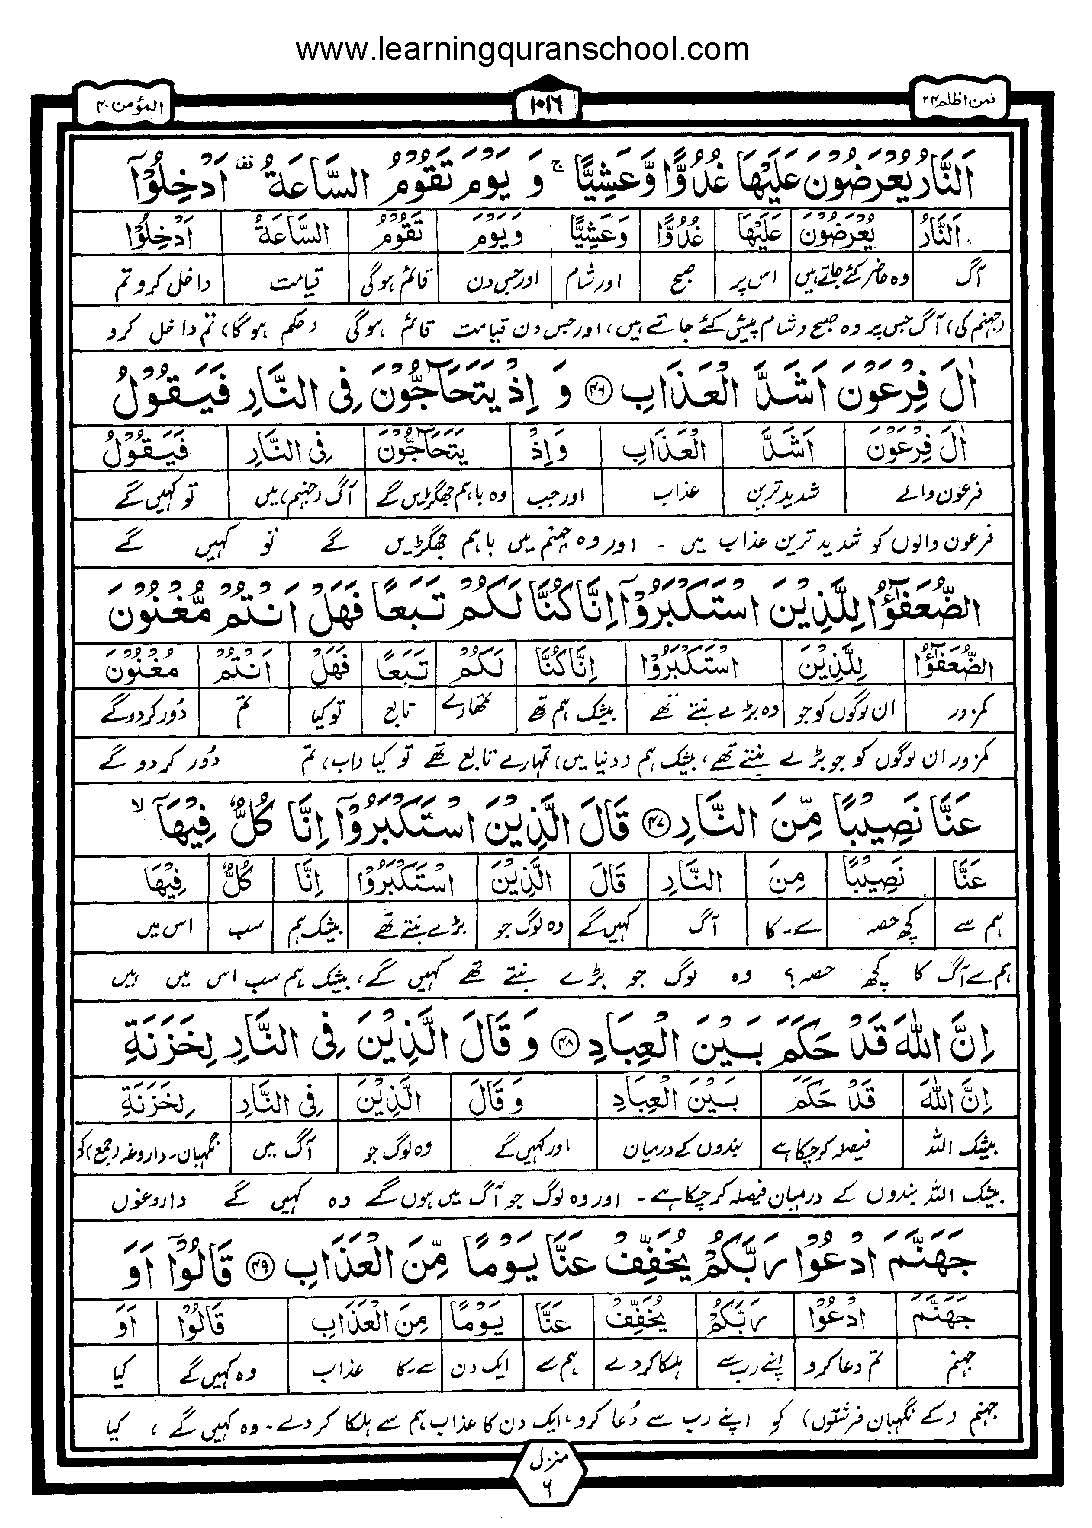 www.learningquranschool.com
فمن اظلم ۲۴
۱۰۱۶
المؤمن ۴۰
اَلنَّارُ یُعْرَضُوْنَ عَلَیْهَا غُدُوًّا وَّ عَشِیًّا ۚ وَ یَوْمَ تَقُوْمُ السَّاعَةُ ۫ اَدْخِلُوْۤا
اَلنَّارُ یُعْرَضُوْنَ عَلَیْهَا غُدُوًّا وَعَشِیًّا وَیَوْمَ تَقُوْمُ السَّاعَةُ اَدْخِلُوْۤا
آگ وہ حاضر کئے جاتے ہیں اس پر صبح اور شام اور جس دن قائم ہوگی قیامت داخل کرو تم
(جہنم کی) آگ جس پر وہ صبح و شام پیش کئے جاتے ہیں، اور جس دن قیامت قائم ہوگی (حکم ہوگا) تم داخل کرو
اٰلَ فِرْعَوْنَ اَشَدَّ الْعَذَابِ ۴۶ وَ اِذْ یَتَحَآجُّوْنَ فِی النَّارِ فَیَقُوْلُ
اٰلَ فِرْعَوْنَ اَشَدَّ الْعَذَابِ وَاِذْ یَتَحَآجُّوْنَ فِی النَّارِ فَیَقُوْلُ
فرعون والے شدید ترین عذاب اور جب وہ باہم جھگڑیں گے آگ (جہنم) میں تو کہیں گے
فرعون والوں کو شدید ترین عذاب میں ۔ اور وہ جہنم میں باہم جھگڑیں گے تو کہیں گے
الضُّعَفٰٓؤُا لِلَّذِیْنَ اسْتَكْبَرُوْۤا اِنَّا كُنَّا لَكُمْ تَبَعًا فَهَلْ اَنْتُمْ مُّغْنُوْنَ
الضُّعَفٰٓؤُا لِلَّذِیْنَ اسْتَكْبَرُوْۤا اِنَّا كُنَّا لَكُمْ تَبَعًا فَهَلْ اَنْتُمْ مُغْنُوْنَ
کمزور ان لوگوں کو جو وہ بڑے بنتے تھے بیشک ہم تھے تمہارے تابع تو کیا تم دُور کردوگے
کمزور ان لوگوں کو جو بڑے بنتے تھے، بیشک ہم (دنیا میں) تمہارے تابع تھے تو کیا (اب) تم دُور کر دو گے
عَنَّا نَصِیْبًا مِّنَ النَّارِ ۴۷ قَالَ الَّذِیْنَ اسْتَكْبَرُوْۤا اِنَّا كُلٌّ فِیْهَاۤ ۙ
عَنَّا نَصِیْبًا مِنَ النَّارِ قَالَ الَّذِیْنَ اسْتَكْبَرُوْۤا اِنَّا كُلٌّ فِیْهَا
ہم سے کچھ حصہ سے ۔ کا آگ کہیں گے وہ لوگ جو بڑے بنتے تھے بیشک ہم سب اس میں
ہم سے آگ کا کچھ حصہ؟ وہ لوگ جو بڑے بنتے تھے کہیں گے، بیشک ہم سب اس میں ہیں
اِنَّ اللّٰهَ قَدْ حَكَمَ بَیْنَ الْعِبَادِ ۴۸ وَ قَالَ الَّذِیْنَ فِی النَّارِ لِخَزَنَةِ
اِنَّ اللّٰهَ قَدْ حَكَمَ بَیْنَ الْعِبَادِ وَ قَالَ الَّذِیْنَ فِی النَّارِ لِخَزَنَةِ
بیشک اللہ فیصلہ کرچکا ہے بندوں کے درمیان اور کہیں گے وہ لوگ جو آگ میں نگہبان۔داروغہ (جمع) کو
بیشک اللہ بندوں کے درمیان فیصلہ کرچکا ہے۔ اور وہ لوگ جو آگ میں ہوں گے وہ کہیں گے داروغوں
جَهَنَّمَ ادْعُوْا رَبَّكُمْ یُخَفِّفْ عَنَّا یَوْمًا مِّنَ الْعَذَابِ ۴۹ قَالُوْۤا اَوَ
جَهَنَّمَ ادْعُوْا رَبَّكُمْ یُخَفِّفْ عَنَّا یَوْمًا مِنَ الْعَذَابِ قَالُوْۤا اَوَ
جہنم تم دعا کرو اپنے رب سے ہلکا کردے ہم سے ایک دن سے ۔ کا عذاب وہ کہیں گے کیا
جہنم (کے نگہبان فرشتوں) کو اپنے رب سے دُعا کرو، ایک دن کا عذاب ہم سے ہلکا کر دے۔ وہ کہیں گے ، کیا
منزل ۶